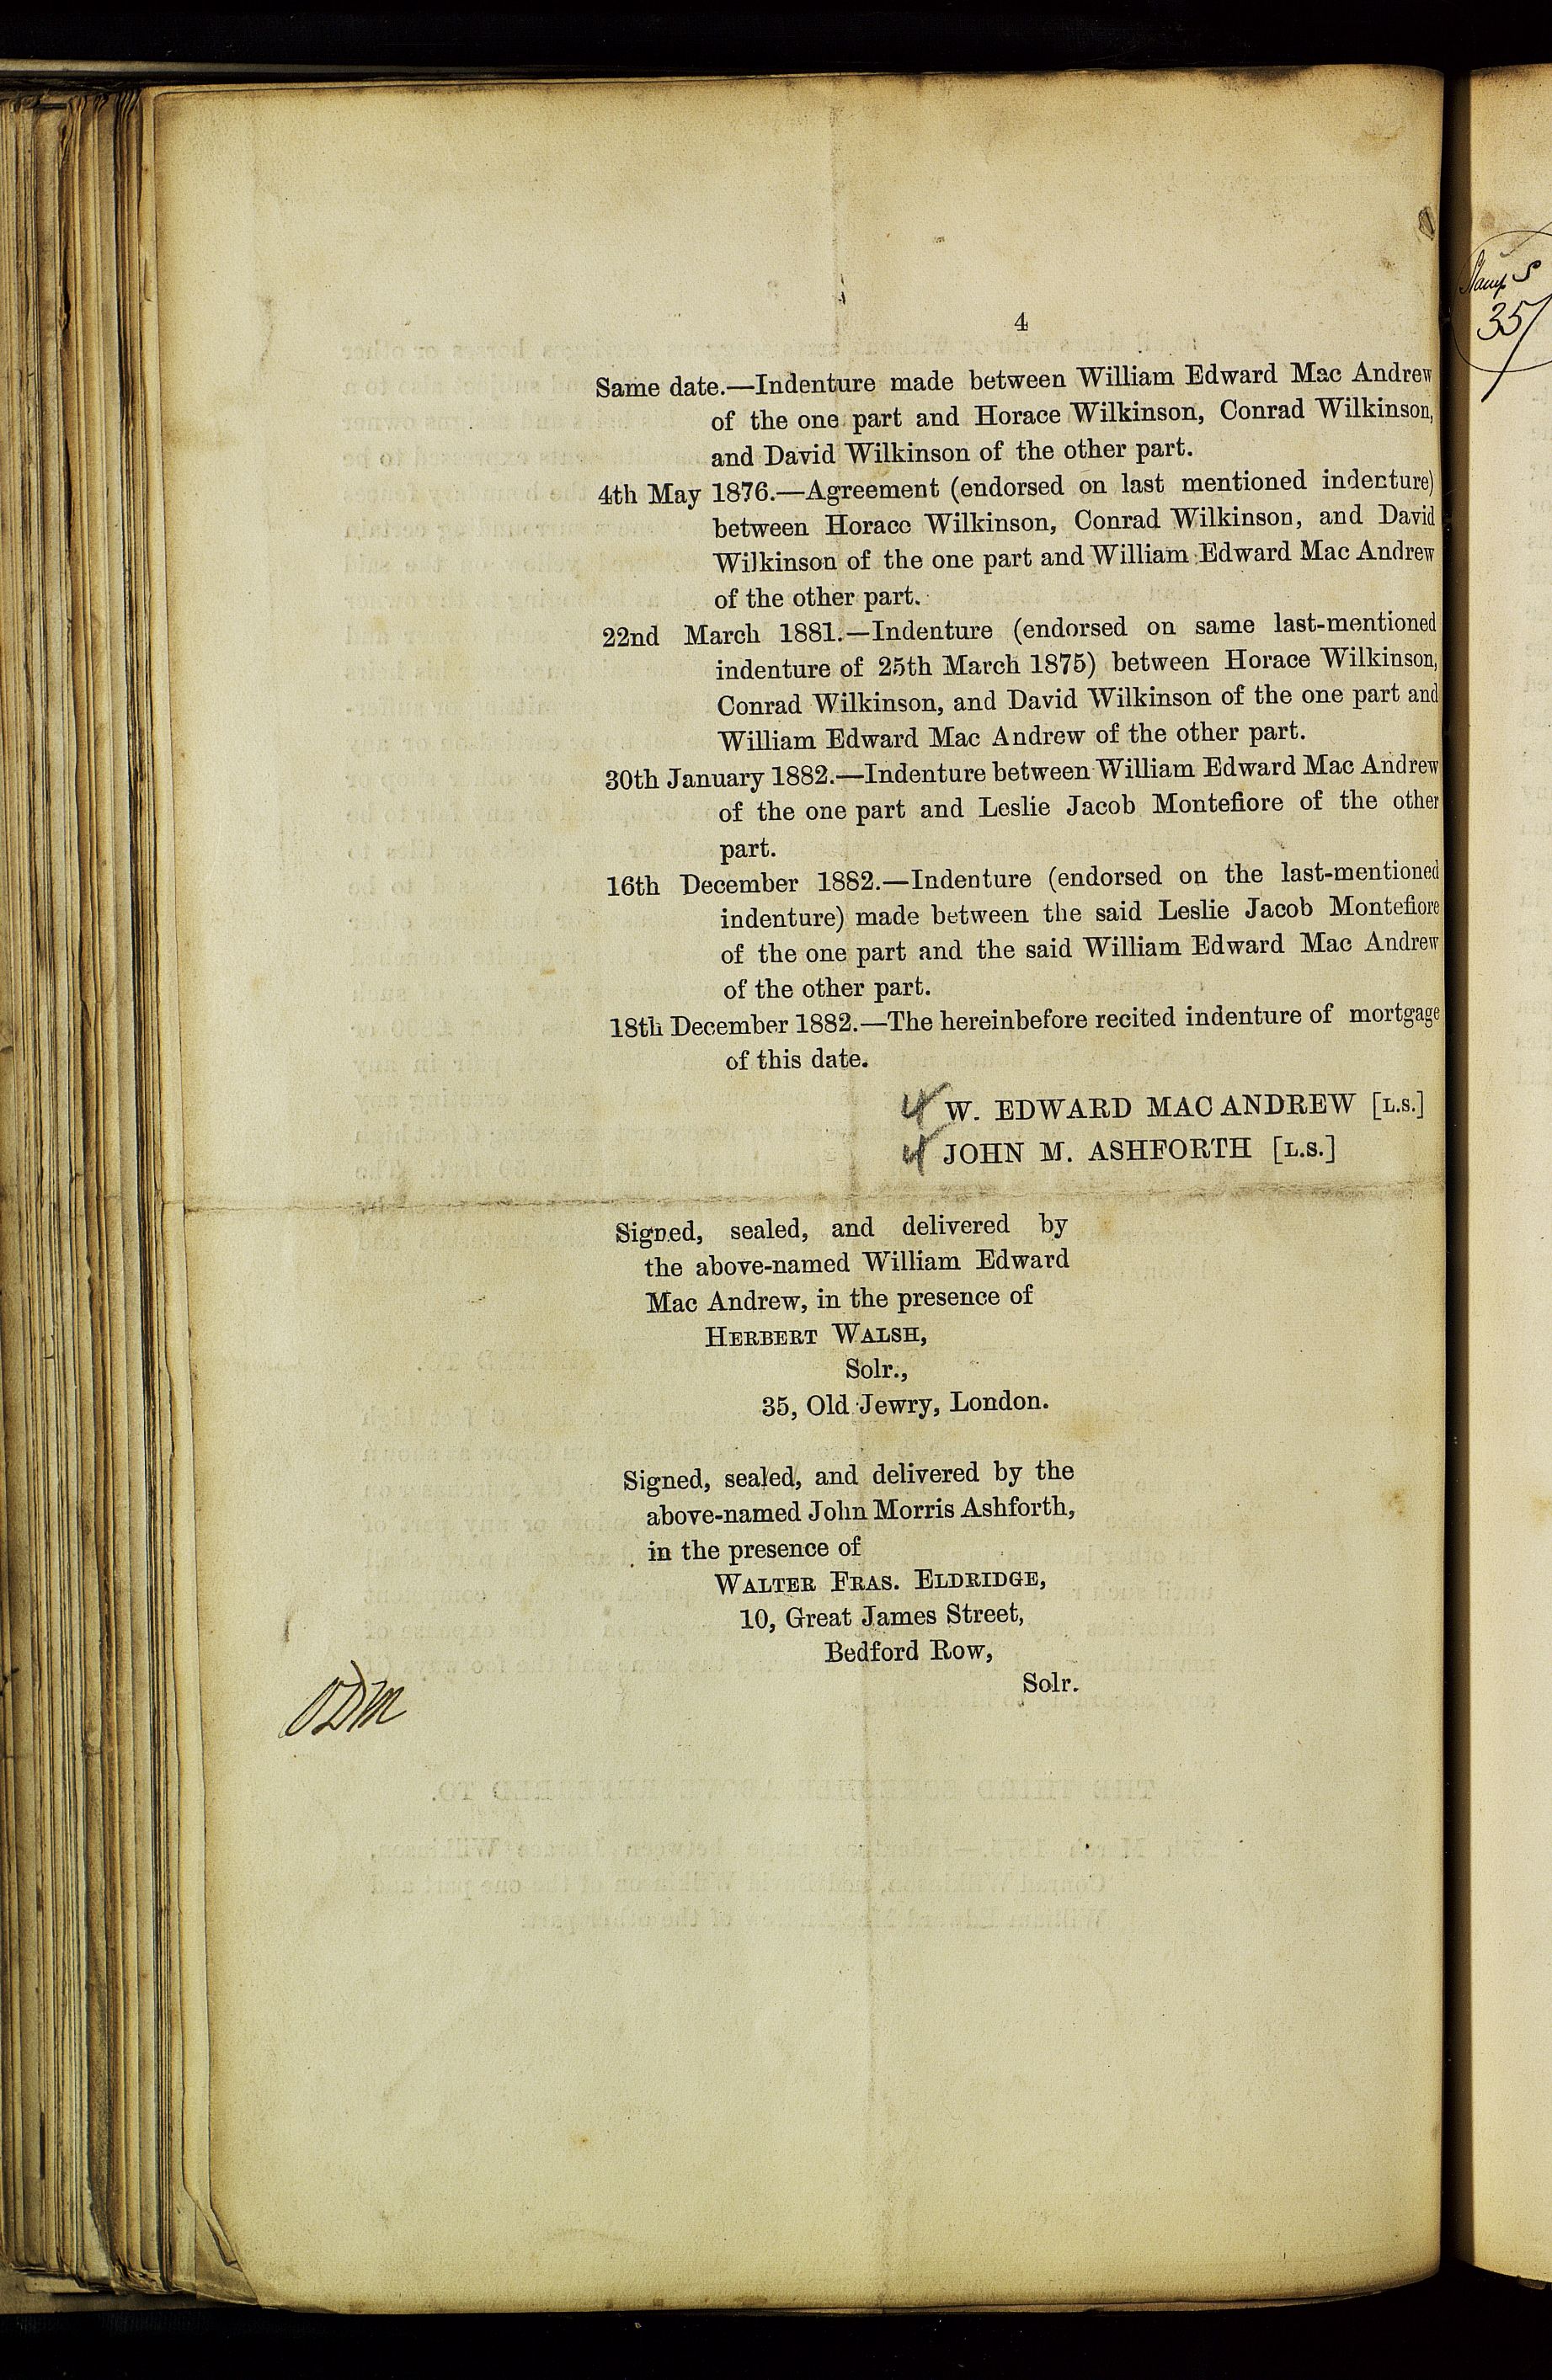 4
Same date.—Indenture made between William Edward Mac Andrew
of the one part and Horace Wilkinson, Conrad Wilkinson,
and David Wilkinson of the other part.
4th May 1876.—Agreement (endorsed on last mentioned indenture)
between Horace Wilkinson, Conrad Wilkinson, and David
Wilkinson of the one part and William Edward Mac Andrew
of the other part.
22nd March 1881.—Indenture (endorsed on same last-mentioned
indenture of 25th March 1875) between Horace Wilkinson,
Conrad Wilkinson, and David Wilkinson of the one part and
William Edward Mac Andrew of the other part.
30th January 1882.—Indenture between William Edward Mac Andrew
of the one part and Leslie Jacob Montefiore of the other
part.
16th December 1882.—Indenture (endorsed on the last-mentioned
indenture) made between the said Leslie Jacob Montefiore
of the one part and the said William Edward Mac Andrew
of the other part.
18th December 1882.—The hereinbefore recited indenture of mortgage
of this date.
W. EDWARD MAC ANDREW [L.S.]
JOHN M. ASHFORTH [L.S.]
Signed, sealed, and delivered by
the above-named William Edward
Mac Andrew, in the presence of
HERBERT WALSH,
Solr.,
35, Old Jewry, London.
Signed, sealed, and delivered by the
above-named John Morris Ashforth,
in the presence of
WALTER FRAS. ELDRIDGE,
10, Great James Street,
Bedford Row,
Solr.
35/